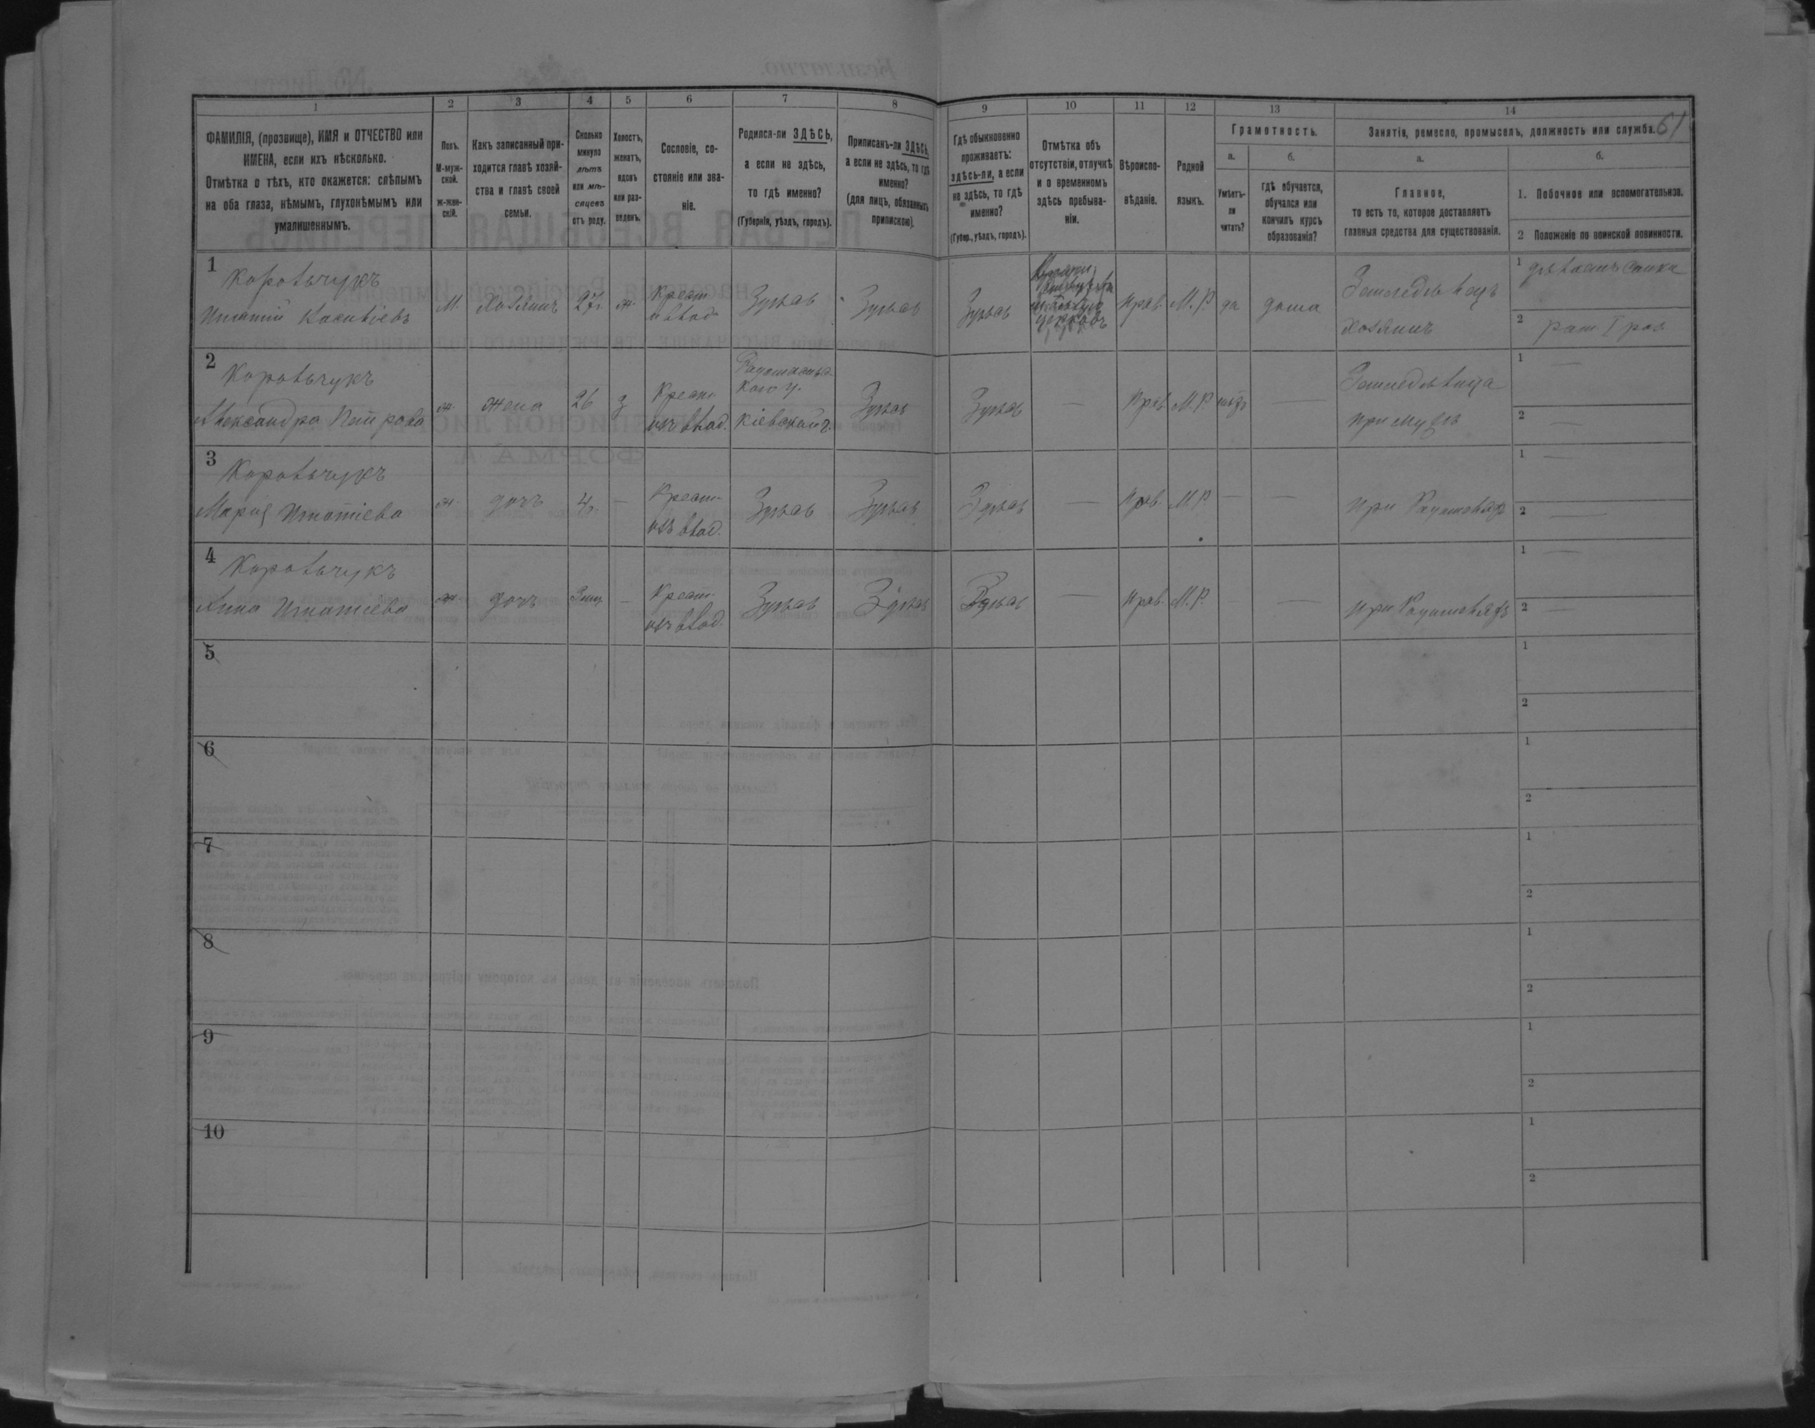 1 2 3 4 5 6 7 8 9 10 11 12 13 14
61
ФАМИЛІЯ, (прозвище), ИМЯ и ОТЧЕСТВО или
ИМЕНА, если ихъ нѣсколько.
Отмѣтка о тѣхъ, кто окажется: слѣпымъ
на оба глаза, нѣмымъ, глухонѣмымъ или
умалишеннымъ.
Полъ.
М-муж-
ской.
ж-жен-
скій.
Какъ записанный при-
ходится главѣ хозяй-
ства и главѣ своей
семьи.
Сколько
минуло
лѣтъ
или мѣ-
сяцевъ
отъ роду.
Холостъ,
женатъ,
вдовъ
или раз-
веденъ.
Сословіе, со-
стояніе или зва-
ніе.
Родился-ли ЗДѢСЬ,
а если не здѣсь,
то гдѣ именно?
(Губернія, уѣздъ, городъ).
Приписанъ-ли ЗДѢСЬ,
а если не здѣсь, то гдѣ
именно?
(для лицъ, обязанныхъ
припискою).
Гдѣ обыкновенно
проживаетъ:
здѣсь-ли, а если
не здѣсь, то гдѣ
именно?
(Губер., уѣздъ, городъ).
Отмѣтка объ
отсутствіи, отлучкѣ
и о временномъ
здѣсь пребыва-
ніи.
Вѣроиспо-
вѣданіе.
Родной
языкъ.
Грамотность.
а.
Умѣетъ-
ли
читать?
б.
гдѣ обучается,
обучался или
кончилъ курсъ
образованія?
Занятія, ремесло, промыселъ, должность или служба.
а.
Главное,
то есть то, которое доставляетъ
главныя средства для существованія.
б.
1. Побочное или вспомогательное.
2 Положеніе по воинской повинности.
1
Коровчукъ
М. Хозяинъ 27 ж. Крест. Здѣсь Здѣсь Здѣсь Прав. М.Р. да дома
Земледѣлецъ
Хозяинъ
1
2 рат I раз
2
Коровчукъ
Александра Петрова
ж. жена 26 з Крест.
изъ влад.
Кіевской г.
Здѣсь Здѣсь — Прав. М.Р. нѣтъ —
при мужѣ
1 —
2 —
3
Коровчукъ
Марія Игнатіева
ж. дочь 4 — Крест.
изъ влад.
Здѣсь Здѣсь Здѣсь — Прав. М.Р. — —
при
1 —
2 —
4
Коровчукъ
Анна Игнатіева
ж. дочь — Крест.
изъ влад.
Здѣсь Здѣсь Здѣсь — Прав. М.Р. —
при
1 —
2 —
5
1
2
6
1
2
7
1
2
8
1
2
9
1
2
10
1
2